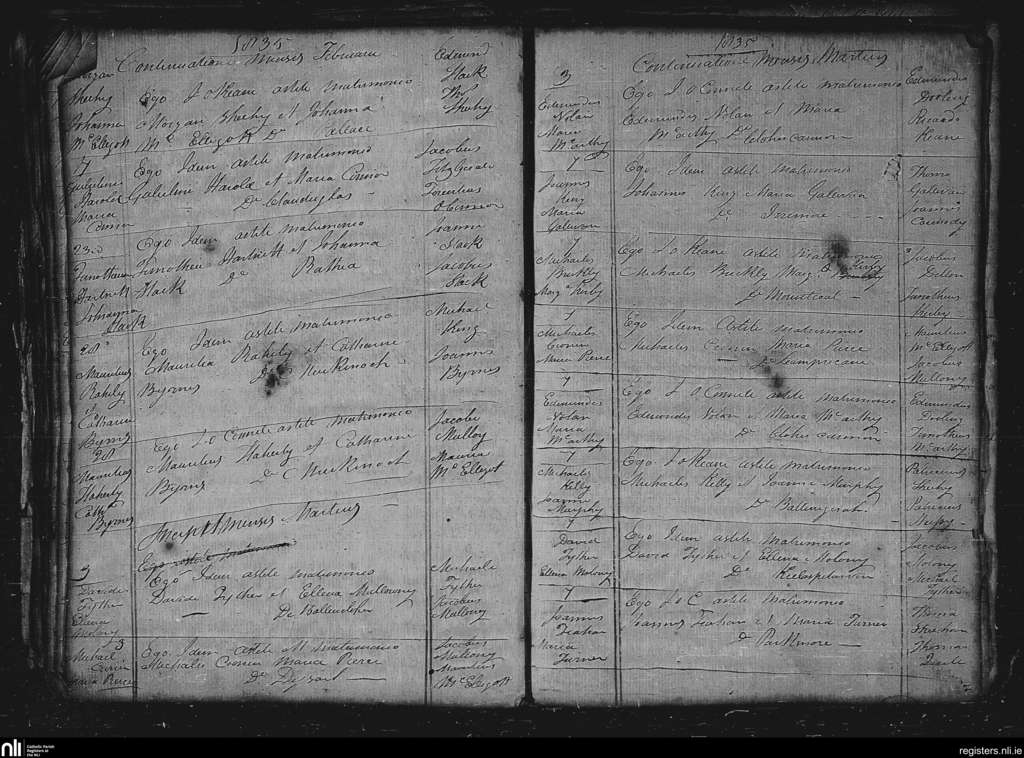 1835
Continuatione Mensis Februarii
Morgan
Sheehy
Johanna
Mc Elligott
Ego J O Keane astite matrimonio
Morgan Sheehy et Johanna
Mc Elligott De
Edmund
Slack
Thos
Sheehy
7
Harold
Maria
Connor
Ego Idem astite matrimonio
Harold et Maria Connor
De
Jacobus
FitzGerald
Terentius
O Connor
23
Hartnett
Johanna
Slack
Ego Idem astite matrimonio
Timotheu Hartnett et Johanna
Slack De Rathea
Joannis
Slack
Jacobus
Slack
28
Maurilius
Rahily
et
Catharine
Byrnes
Ego Idem astite matrimonio
Maurilius Rahily et Catharine
Byrnes De Newknock
Michael
King
Joannes
Byrnes
28
Maurilius
Flaherty
Cath
Byrnes
Ego J O Connele astite matrimonio
Maurilius Flaherty et Catharine
Byrnes De Newknock
Jacobi
Mulloy
Mauria
Mc Elligot
Incipit Mensis Martius
3
Davide
Fyther
Ellena
Molony
Ego Idem astite matrimonio
Davide Fyther et Ellena Mullowny
De
Michaele
Fyther
Jacobus
Mullony
3
Michael
Cronin
Maria Peirce
Ego Idem astite Matrimonio
Michalis Cronin Maria Peirce
De Dysart
Jacobus
Mullony
Maurilius
Mc Elligott
1835
Continuatione Mensis Martius
3
Edmundus
Nolan
Maria
McCarthy
Ego J O Connele astite matrimonio
Edmundus Nolan et Maria
McCarthy De Clohercannon
Edmundus
Dooling
Ricardo
Keane
7
Joannis
King
Maria
Galwin
Ego Idem astite matrimonio
Johannis King Maria Galwin
De
Thoma
Galliwan
Joannis
Cassidy
7
Michaeles
Buckly
Marga Kirby
Ego J O Keane astite Matrimonio
Michaeles Buckly Marg Kirby
De Mountcoal
Jacobus
Dillon
Timothius
Kirby
7
Michaeles
Cronin
Maria Peirce
Ego Idem Astite matrimonio
Michaeles Cronin Maria Peirce
De
Maurilius
Mc Elligott
Jacobus
Mullony
7
Edmundus
Nolan
Maria
McCarthy
Ego J O Connele astite matrimonio
Edmundus Nolan et Maria McCarthy
De Clohercannon
Edmundus
Dooling
Timothius
McCarthy
7
Michaeles
Kelly
Joanna
Murphy
Ego J O Keane astite matrimonio
Michaeles Kelly et Joanna Murphy
De
Patricius
Sheehy
Patricius
Murphy
7
David
Fyther
Ellena Molony
Ego Idem astite matrimonio
David Fyther et Ellena Molony
De
Jacobus
Molony
Michael
Fyther
7
Joannis
Feahan
Maria
Turner
Ego J O C astite matrimonio
Joannis Feahan et Maria Turner
De Parkmore
Thoma
Feahan
Thomas
Deale
nli Catholic Parish
Registers at
the NLI
registers.nli.ie